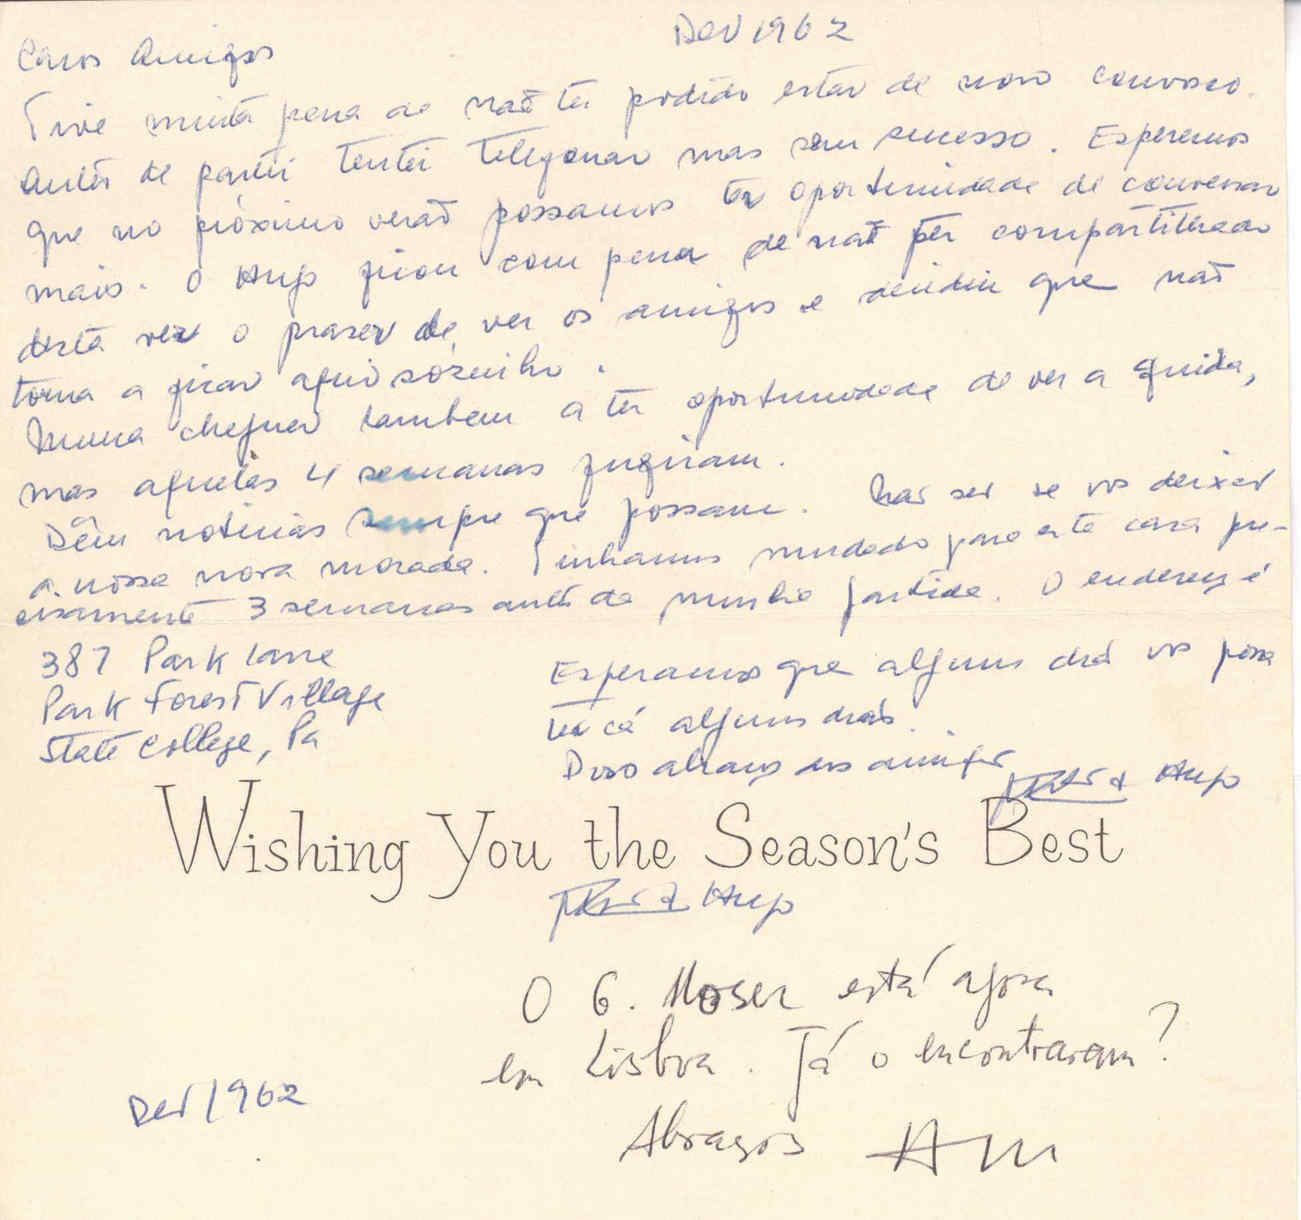 Dez 1962
Caros Amigos
Tive muita pena de não ter podido estar de novo convosco.
Antes de partir tentei telefonar mas sem sucesso. Esperemos
que no próximo verão possamos ter oportunidade de conversar
mais. O Hugo ficou com pena de não ter compartilhado
desta vez o prazer de ver os amigos e decidiu que não
torna a ficar aqui sózinho.
Nunca cheguei tambem a ter oportunidade de ver a Guida,
mas aquelas 4 semanas fugiram.
Dêm noticias sempre que possam. Não sei se vos deixei
a nossa nova morada. Tinhamos mudado para esta casa pre-
cisamente 3 semanas antes da minha partida. O endereço é
387 Park Lane
Park Forest Village
State College, Pa
Esperamos que algum dia vos possa
ter cá alguns dias.
abraço dos amigos
& Hugo
Wishing You the Season's Best
& Hugo
O G. Moser está agora
em Lisboa. Já o encontraram?
Abraços
Dez 1962